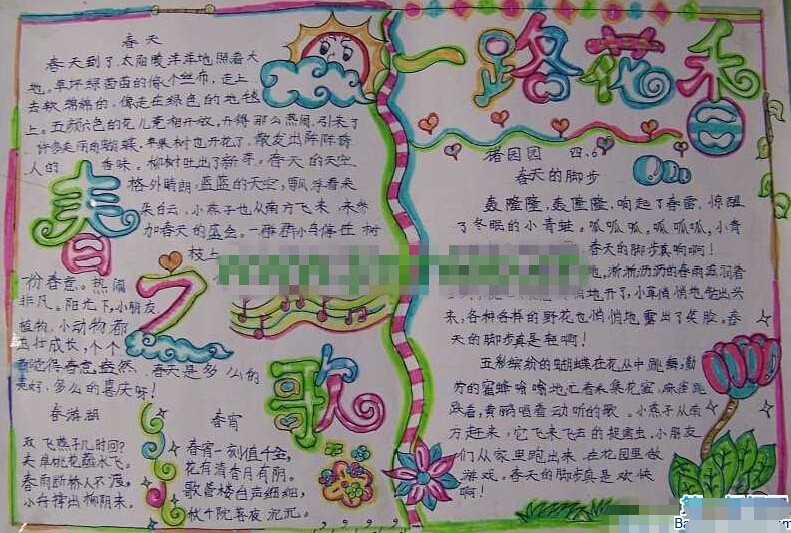 春天
春天到了,太阳暖洋洋地照着大
地。草坪绿茵茵的像个丝巾,走上
去软绵绵的,像走在绿色的地毯
上。五颜六色的花儿竞相开放,开得那么热闹,引来了
许多美丽的蝴蝶。苹果树也开花了,散发出阵阵诱
人的 香味。柳树吐出了新芽。春天的天空
格外晴朗,蓝蓝的天空,飘浮着朵
朵白云,小燕子也从南方飞来,来参
加春天的盛会。一群群小鸟停在树
枝上
一份春意。热闹
非凡。阳光下,小朋友,
植物,小动物都
茁壮成长,个个
春意盎然,春天是多么的
美好,多么的喜庆呀!
春之歌
春游湖
双飞燕子几时回?
夹岸桃花蘸水飞。
春雨断桥人不渡,
小舟撑出柳阴来。
春宵
春宵一刻值千金,
花有清香月有阴。
歌管楼台声细细,
秋千院落夜沉沉。
一路花香
猪园园 四.6
春天的脚步
轰隆隆,轰隆隆,响起了春雷,惊醒
了冬眠的小青蛙。呱呱呱,呱呱呱,小青
春天的脚步真响啊!
地,淅淅沥沥的春雨滋润着
悄地开了,小草悄悄地钻出头
来,各种各样的野花也悄悄地露出了笑脸。春
天的脚步真是轻啊!
五彩缤纷的蝴蝶在花丛中跳舞,勤
劳的蜜蜂嗡嗡地忙着采集花蜜,麻雀跳
跃着,黄鹂唱着动听的歌。小燕子从南
方赶来,它飞来飞去的捉害虫,小朋友
们从家里跑出来,在花园里做
游戏。春天的脚步真是欢快
啊!